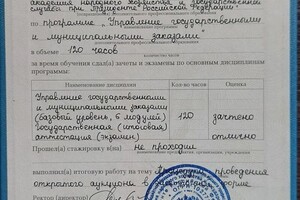 академия народного хозяйства и государственной
службы при Президенте Российской Федерации"
по программе "Управление государственными
и муниципальными заказами"
в объеме 120 часов
за время обучения сдал(а) зачеты и экзамены по основным дисциплинам
программы:
Наименование Кол-во часов Оценка
Управление государственными
и муниципальными заказами
(базовый уровень, 5 модулей) 120 зачтено
Государственная (итоговая)
аттестация (экзамен) отлично
Прошел(а) стажировку в (на) не проходил
выполнил(а) итоговую работу на тему проведения
открытого аукциона в электронной форме.
Ректор (директор)